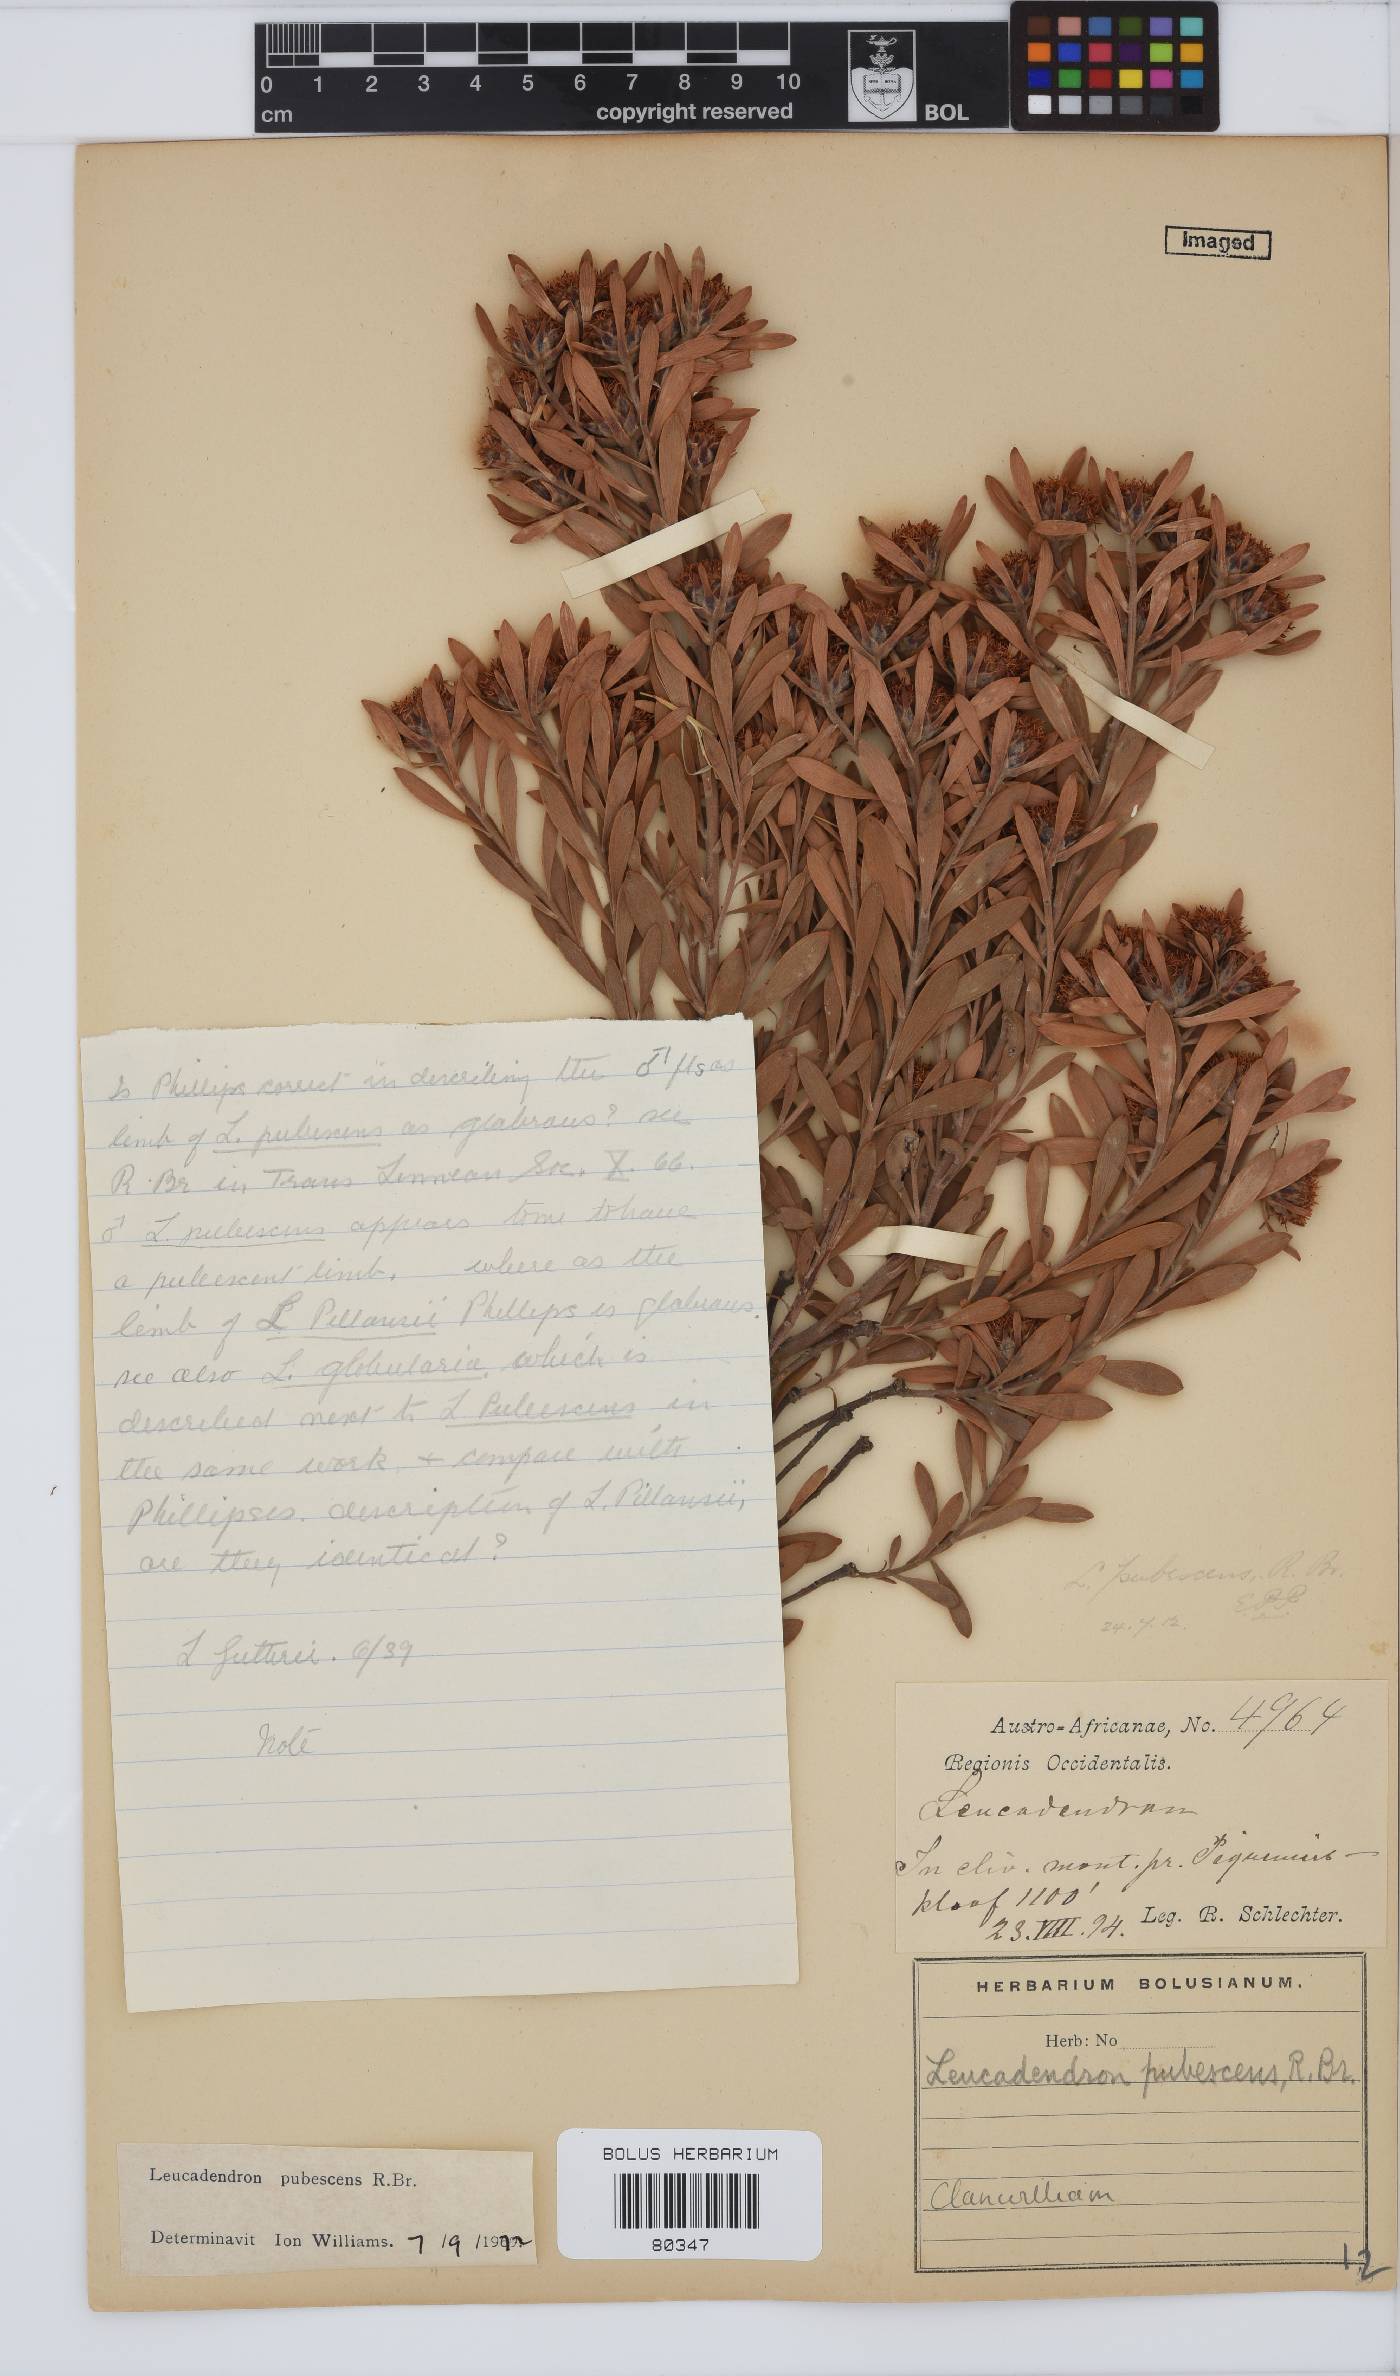 0 1 2 3 4 5 6 7 8 9 10
cm
copyright reserved
BOL
Imaged
Is Phillips correct in describing the ♂ fls as
limb of L. pubescens as glabrous? see
R. Br in Trans Linnean Soc. X. 66.
♂ L. pubescens appears to me to have
a pubescent limb. where as the
limb of L Pillansii Phillips is glabrous.
see also L. globularia, which is
described next to L Pubescens in
the same work, + compare with
Phillipses. description of L. Pillansii,
are they identical?
L Guthrie. 6/39
Note
L. pubescens, R. Br.
E.P.P.
24.7.12.
Austro=Africanae, No. 4964
Regionis Occidentalis.
Leucadendron
In cliv. mont. pr. Piqueniers-
kloof 1100'
23.VIII.94. Leg. R. Schlechter.
HERBARIUM BOLUSIANUM.
Herb: No
Leucadendron pubescens, R. Br.
Clanwilliam
12
Leucadendron pubescens R.Br.
Determinavit Ion Williams. 7/9/1972
BOLUS HERBARIUM
80347